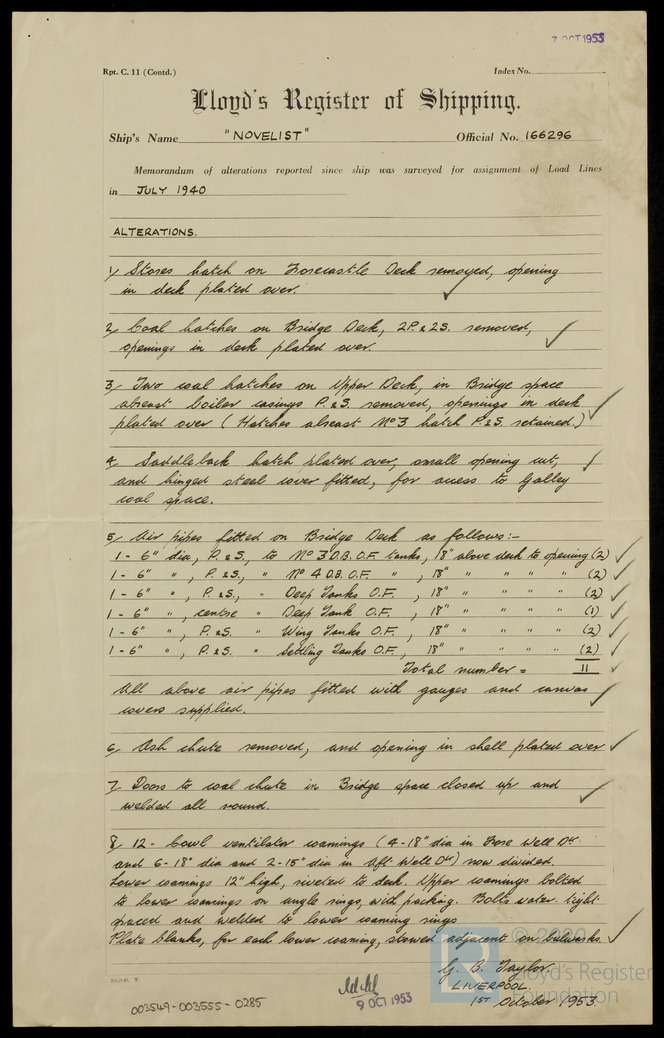 7 OCT 1953
Rpt. C. 11 (Contd.) Index No.
Lloyd's Register of Shipping.
Ship's Name "NOVELIST" Official No. 166296
Memorandum of alterations reported since ship was surveyed for assignment of Load Lines
in JULY 1940
ALTERATIONS.
1/ Stores hatch on Forecastle Deck removed, opening
in deck plated over.
2/ Coal hatches on Bridge Deck, 2P. & 2S. removed,
openings in deck plated over.
3/ Two coal hatches on Upper Deck, in Bridge space
abreast boiler casings P. & S. removed, openings in deck
plated over (Hatches abreast No 3 hatch P. & S. retained.)
4/ Saddleback hatch plated over, small opening cut,
and hinged steel cover fitted, for access to Galley
coal space.
5/ Air pipes fitted on Bridge Deck as follows:-
1 - 6" dia, P. & S., to No 3 D.B. O.F. tanks, 18" above deck to opening (2)
1 - 6" " , P. & S., " No 4 D.B. O.F. " , 18" " " " " (2)
1 - 6" " , P. & S., " Deep Tanks O.F. , 18" " " " " (2)
1 - 6" " , centre " Deep Tank O.F. , 18" " " " " (1)
1 - 6" " , P. & S. " Wing Tanks O.F. , 18" " " " " (2)
1 - 6" " , P. & S. " Settling Tanks O.F. , 18" " " " " (2)
Total number = 11
All above air pipes fitted with gauges and canvas
covers supplied.
6/ Ash chute removed, and opening in shell plated over
7/ Doors to coal chute in Bridge space closed up and
welded all round.
8/ 12 - Cowl ventilator coamings (4-18" dia in Fore Well Dk
and 6-18" dia and 2-15" dia in Aft Well Dk) now divided.
Lower coamings 12" high, riveted to deck. Upper coamings bolted
to lower coamings on angle rings, with packing. Bolts water tight
spaced and welded to lower coaming rings
Plate blanks, for each lower coaming, stowed adjacent on bulwarks.
G. B. Taylor.
LIVERPOOL.
1st October 1953.
9 OCT 1953
003549-003555-0285
© 2020
LR
Lloyd's Register
Foundation